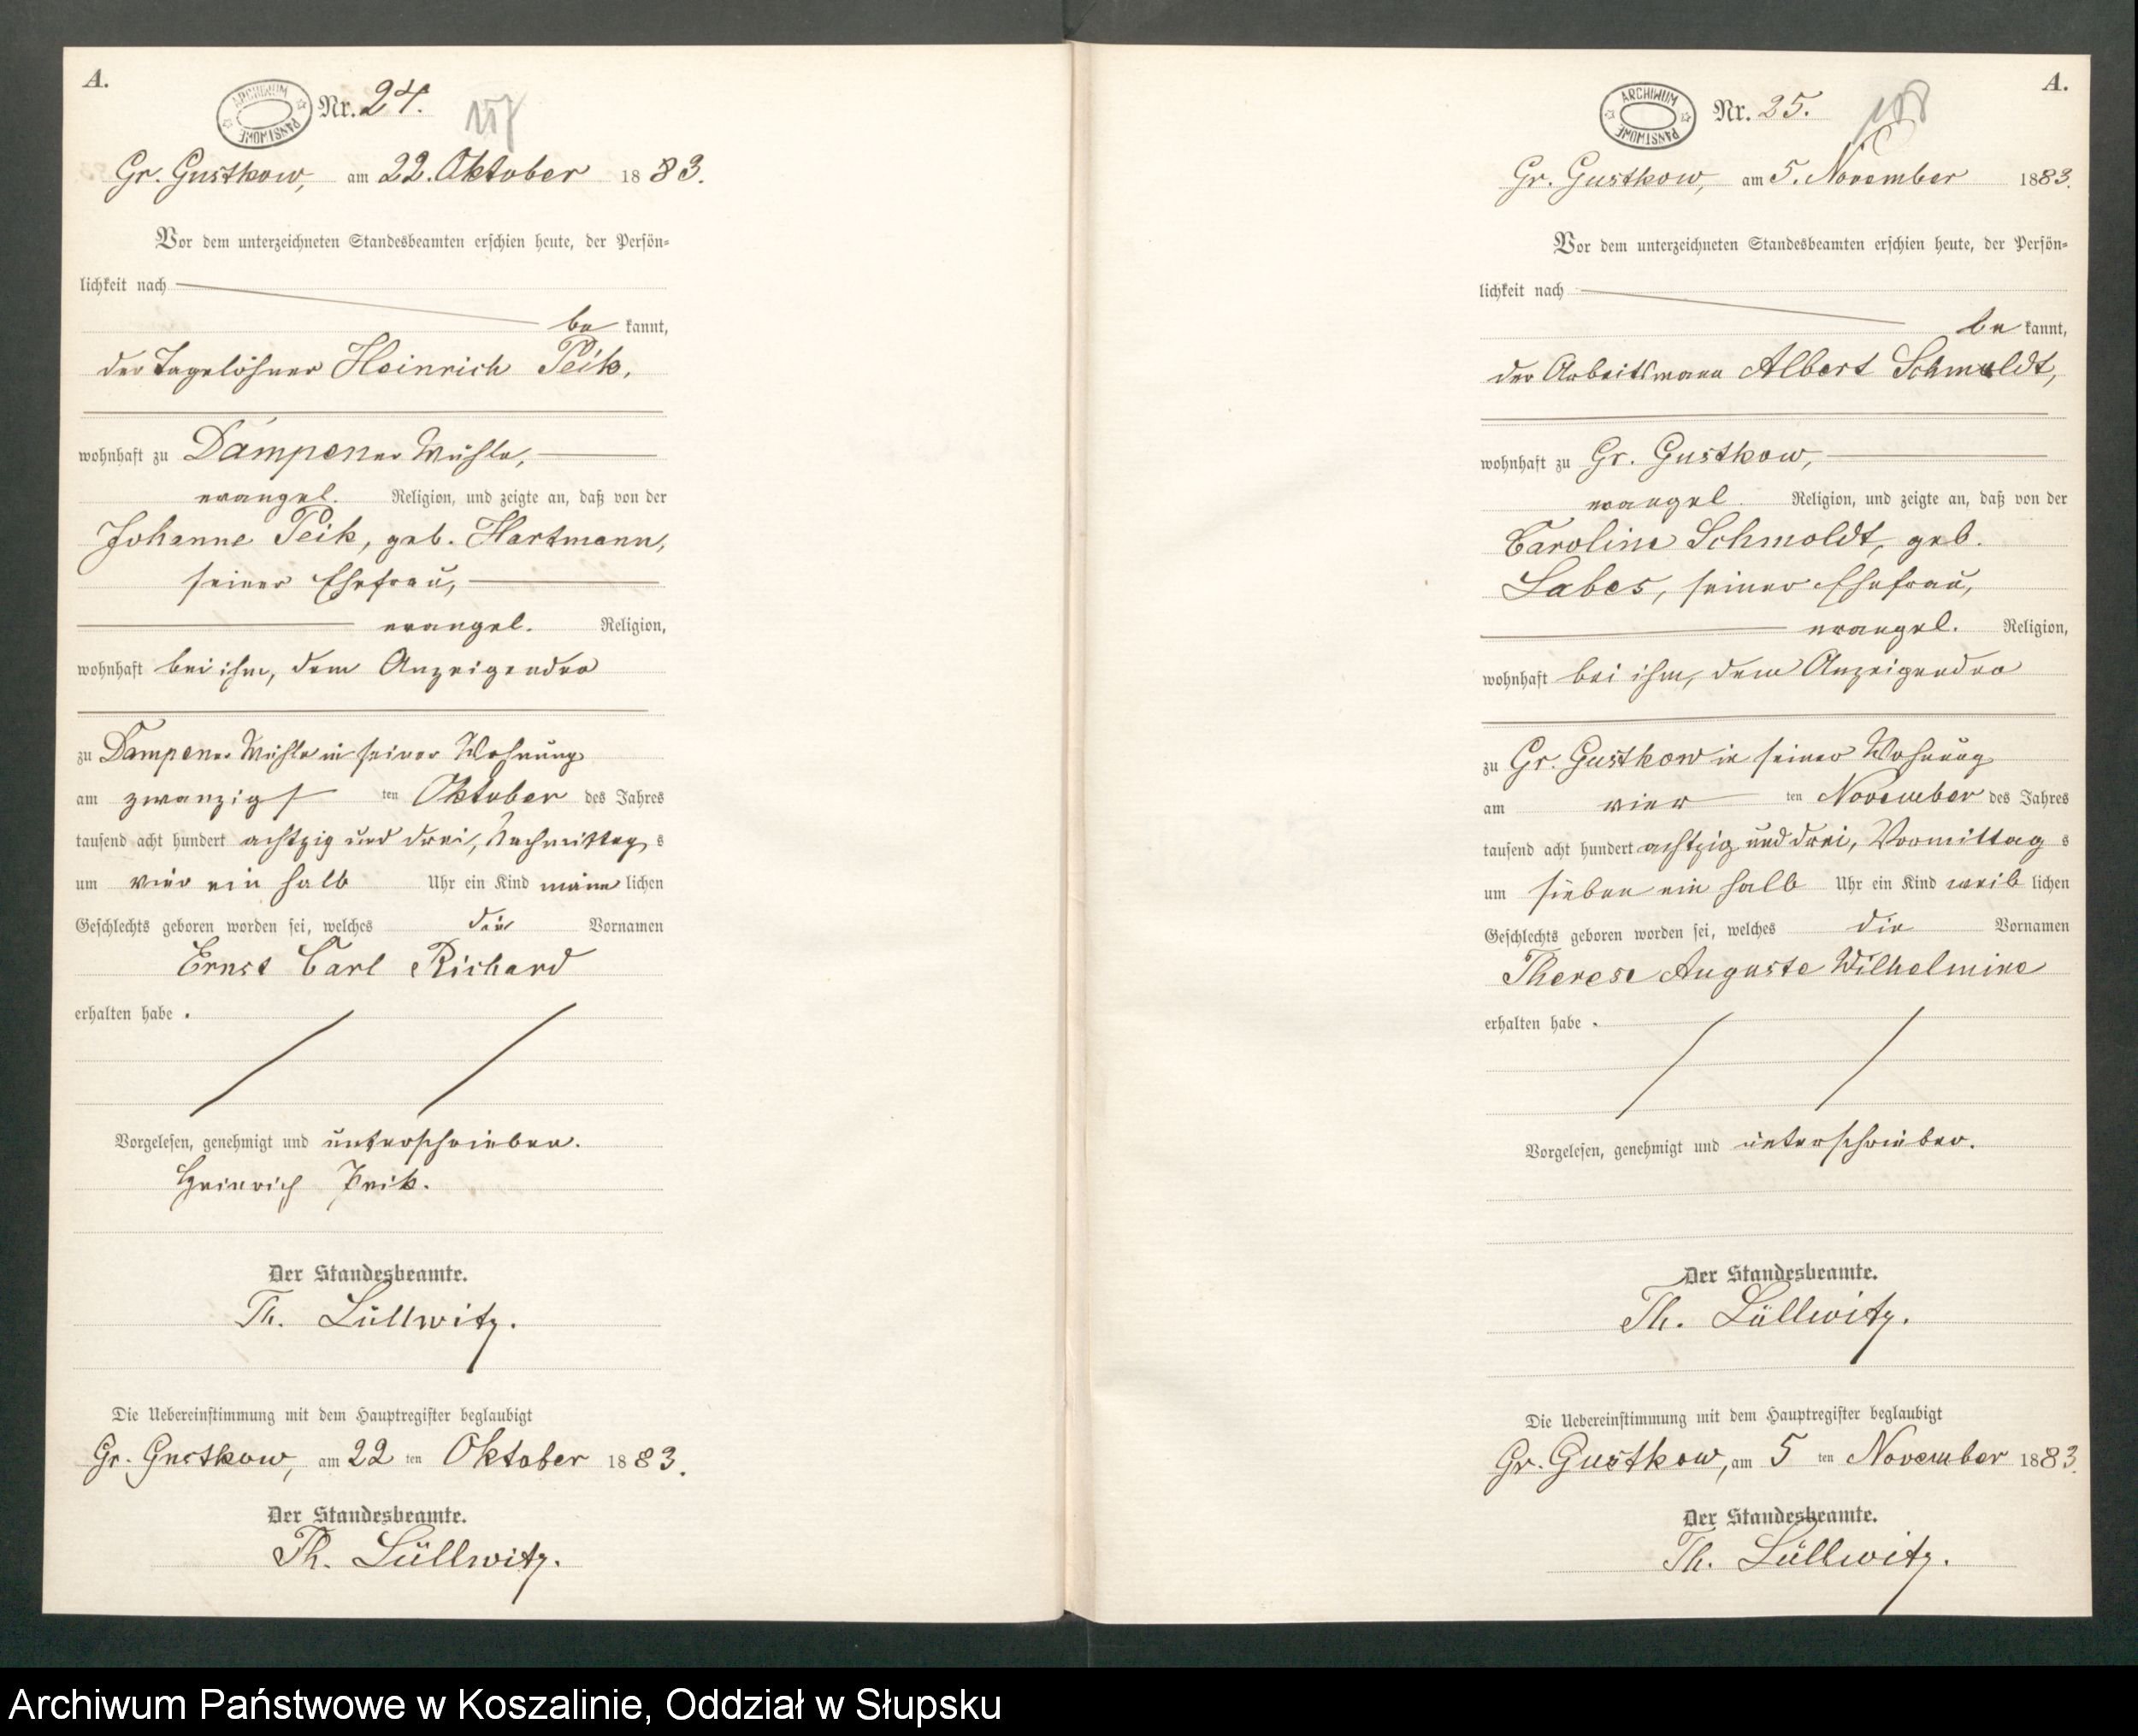 A.
ARCHIWUM PAŃSTWOWE
Nr. 24.
157
Gr. Gustkow, am 22. Oktober 1883.
Vor dem unterzeichneten Standesbeamten erschien heute, der Persön-
lichkeit nach
be kannt,
der Tagelöhner Heinrich Peik,
wohnhaft zu Dampener Mühle,
evangel. Religion, und zeigte an, daß von der
Johanne Peik, geb. Hartmann,
seiner Ehefrau,
evangel. Religion,
wohnhaft bei ihm, dem Anzeigenden
zu Dampener Mühle in seiner Wohnung
am zwanzigs ten Oktober des Jahres
tausend acht hundert achtzig und drei, Nachmittag s
um vier ein halb Uhr ein Kind männ lichen
Geschlechts geboren worden sei, welches die Vornamen
Ernst Carl Richard
erhalten habe.
Vorgelesen, genehmigt und unterschrieben.
Heinrich Peik.
Der Standesbeamte.
Th. Lüllwitz.
Die Uebereinstimmung mit dem Hauptregister beglaubigt
Gr. Gustkow, am 22 ten Oktober 1883.
Der Standesbeamte.
Th. Lüllwitz.
A.
ARCHIWUM PAŃSTWOWE
Nr. 25.
158
Gr. Gustkow, am 5. November 1883.
Vor dem unterzeichneten Standesbeamten erschien heute, der Persön-
lichkeit nach
be kannt,
der Arbeitsmann Albert Schmoldt,
wohnhaft zu Gr. Gustkow,
evangel. Religion, und zeigte an, daß von der
Caroline Schmoldt, geb.
Labes, seiner Ehefrau,
evangel. Religion,
wohnhaft bei ihm, dem Anzeigenden
zu Gr. Gustkow in seiner Wohnung
am vier ten November des Jahres
tausend acht hundert achtzig und drei, Vormittag s
um sieben ein halb Uhr ein Kind weib lichen
Geschlechts geboren worden sei, welches die Vornamen
Therese Auguste Wilhelmine
erhalten habe.
Vorgelesen, genehmigt und unterschrieben.
Der Standesbeamte.
Th. Lüllwitz.
Die Uebereinstimmung mit dem Hauptregister beglaubigt
Gr. Gustkow, am 5 ten November 1883.
Der Standesbeamte.
Th. Lüllwitz.
Archiwum Państwowe w Koszalinie, Oddział w Słupsku